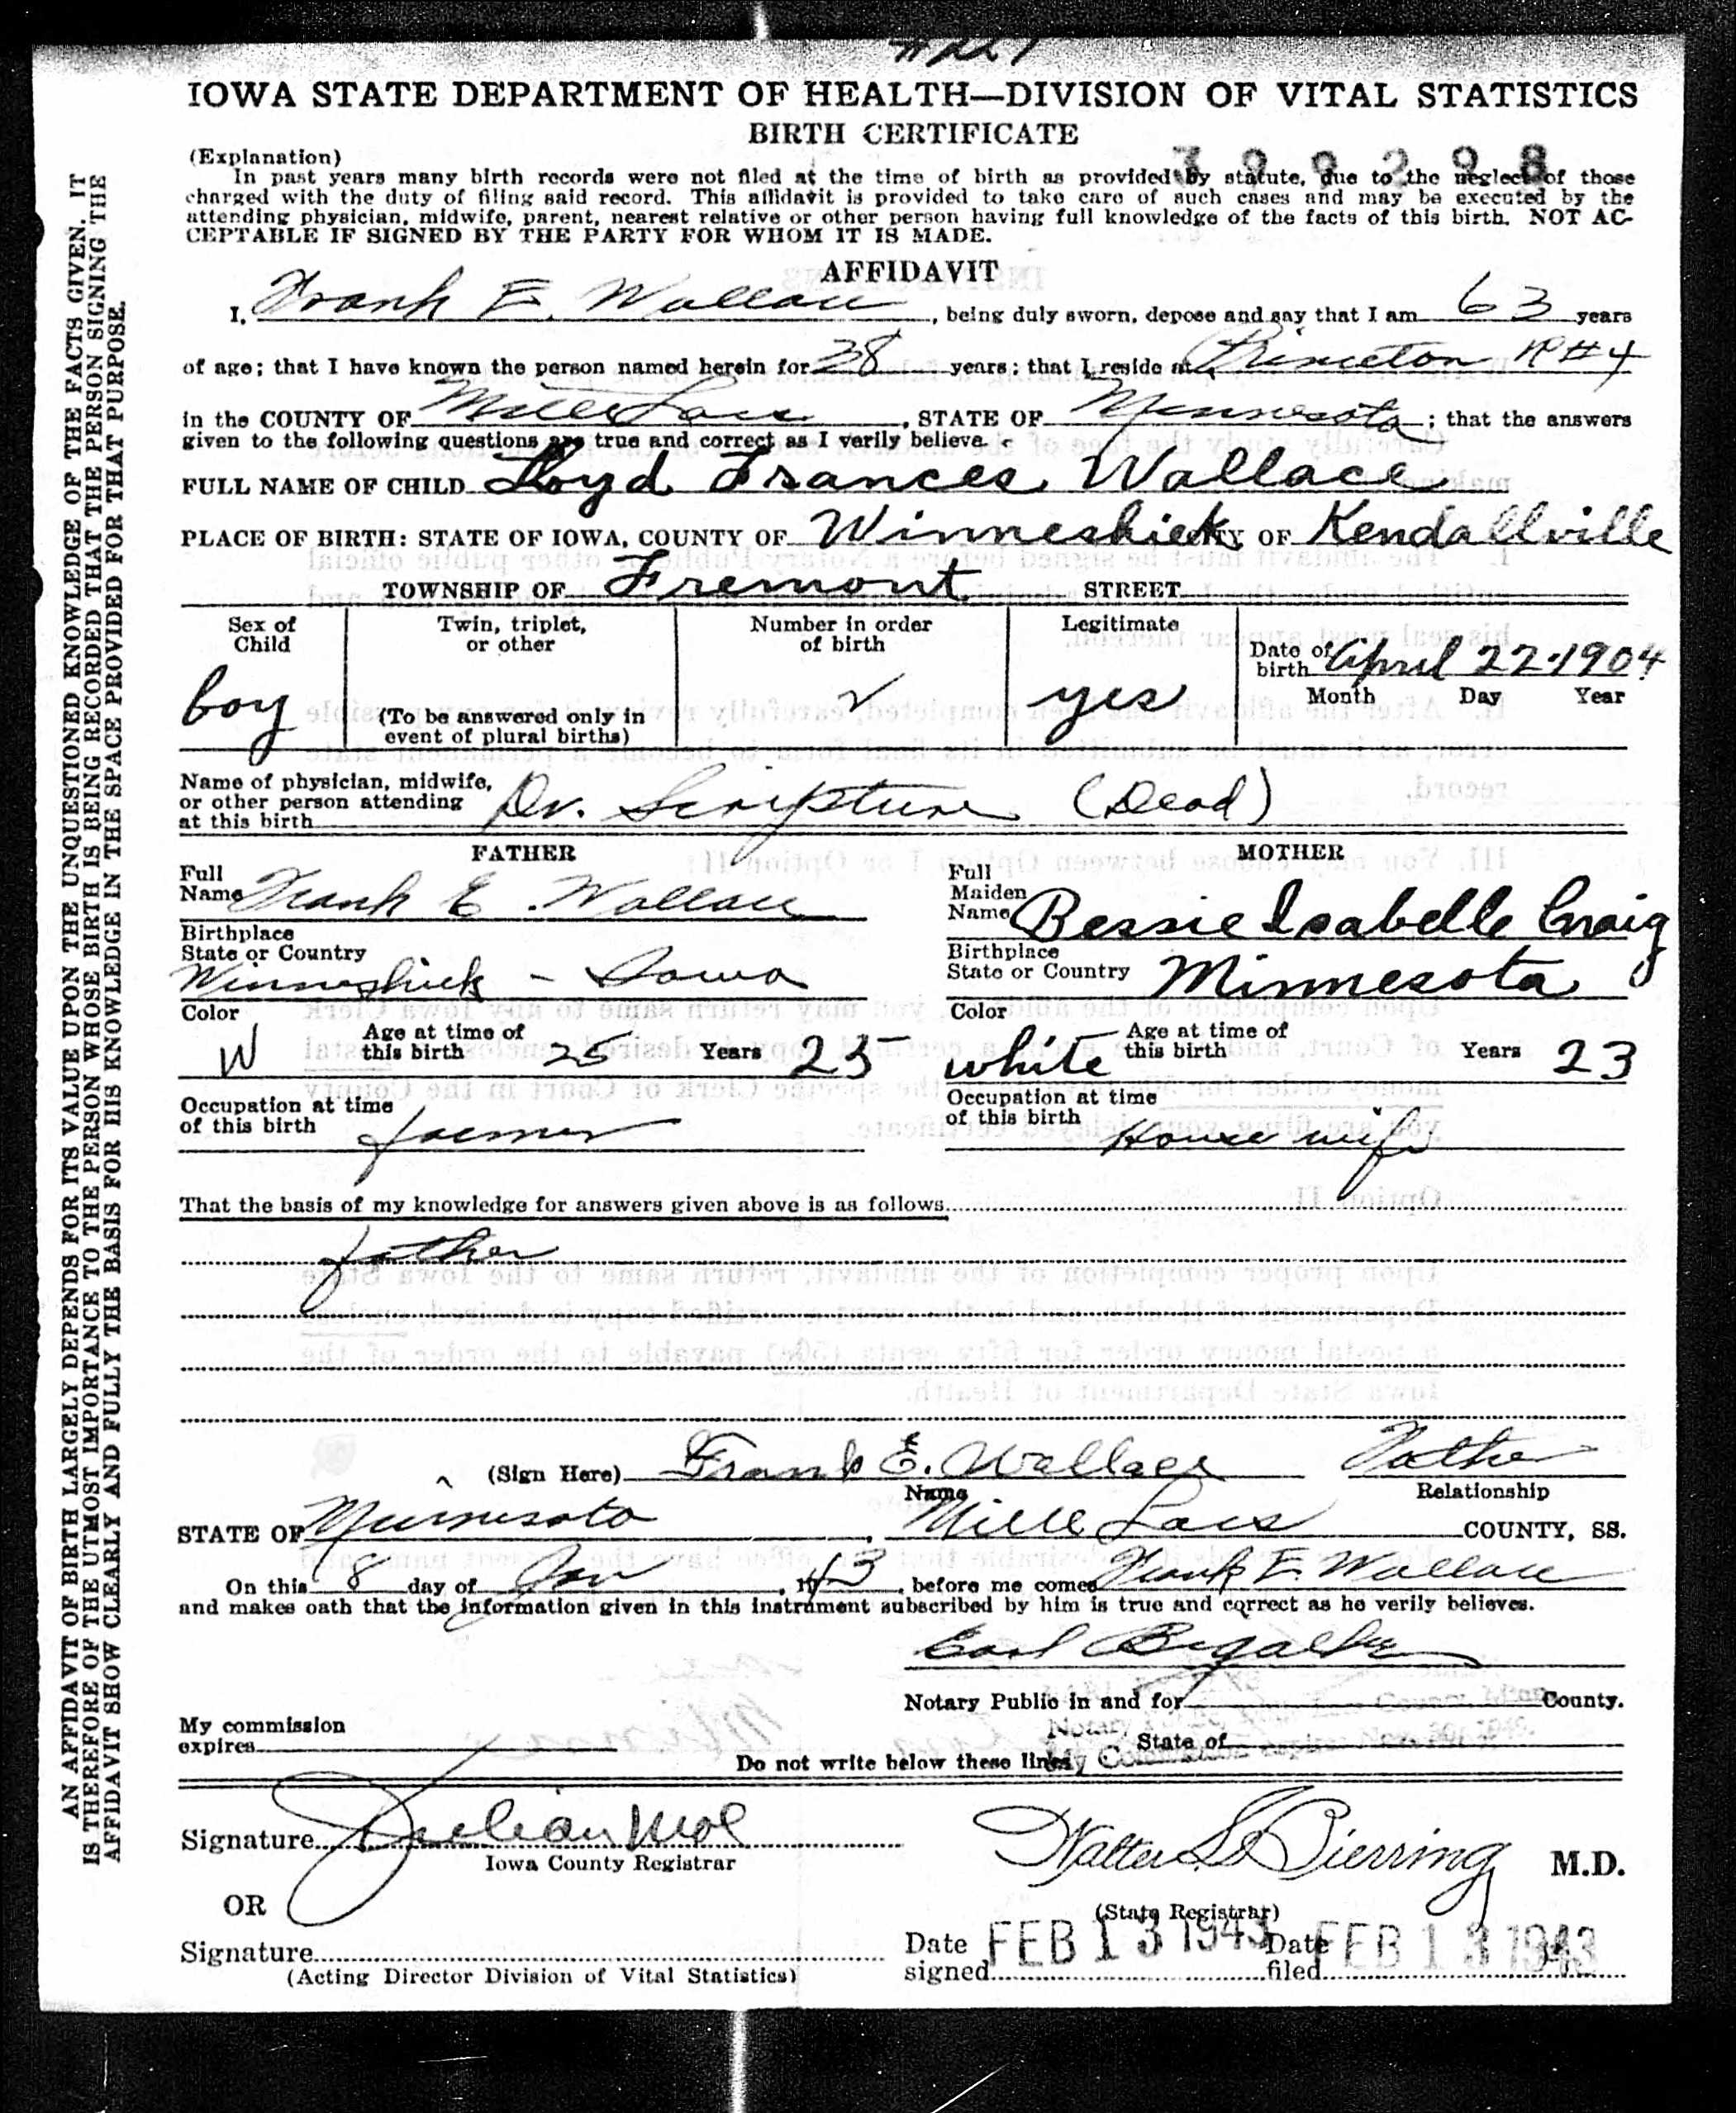 IOWA STATE DEPARTMENT OF HEALTH—DIVISION OF VITAL STATISTICS
BIRTH CERTIFICATE
(Explanation)
In past years many birth records were not filed at the time of birth as provided by statute, due to the neglect of those
charged with the duty of filing said record. This affidavit is provided to take care of such cases and may be executed by the
attending physician, midwife, parent, nearest relative or other person having full knowledge of the facts of this birth. NOT AC-
CEPTABLE IF SIGNED BY THE PARTY FOR WHOM IT IS MADE.
AFFIDAVIT
I, Frank E. Wallace, being duly sworn, depose and say that I am 63 years
of age; that I have known the person named herein for 38 years; that I reside at Princeton R#4
in the COUNTY OF Mille Lacs, STATE OF Minnesota; that the answers
given to the following questions are true and correct as I verily believe.
FULL NAME OF CHILD Loyd Frances Wallace
PLACE OF BIRTH: STATE OF IOWA, COUNTY OF Winneshiek OF Kendallville
TOWNSHIP OF Fremont STREET
Sex of Child boy
Twin, triplet, or other
(To be answered only in event of plural births)
Number in order of birth
Legitimate yes
Date of birth April 22-1904
Month Day Year
Name of physician, midwife,
or other person attending
at this birth Dr. Scripture (Dead)
FATHER
Full
Name Frank E. Wallace
Birthplace
State or Country
Winneshiek - Iowa
Color W Age at time of this birth 25 Years 25
Occupation at time
of this birth farmer
MOTHER
Full
Maiden
Name Bessie Isabelle Craig
Birthplace
State or Country Minnesota
Color white Age at time of this birth Years 23
Occupation at time
of this birth House wife
That the basis of my knowledge for answers given above is as follows
father
(Sign Here) Frank E. Wallace Father
Name Relationship
STATE OF Minnesota, Mille Lacs COUNTY, SS.
On this 18 day of Jan, 1943, before me comes Frank E. Wallace
and makes oath that the information given in this instrument subscribed by him is true and correct as he verily believes.
Notary Public in and for County.
My commission
expires State of
Do not write below these lines
Signature Julian Mol
Iowa County Registrar
Walter L. Bierring M.D.
(State Registrar)
OR
Signature
(Acting Director Division of Vital Statistics)
Date signed FEB 13 1943 Date filed FEB 13 1943
AN AFFIDAVIT OF BIRTH LARGELY DEPENDS FOR ITS VALUE UPON THE UNQUESTIONED KNOWLEDGE OF THE FACTS GIVEN. IT
IS THEREFORE OF THE UTMOST IMPORTANCE TO THE PERSON WHOSE BIRTH IS BEING RECORDED THAT THE PERSON SIGNING THE
AFFIDAVIT SHOW CLEARLY AND FULLY THE BASIS FOR HIS KNOWLEDGE IN THE SPACE PROVIDED FOR THAT PURPOSE.